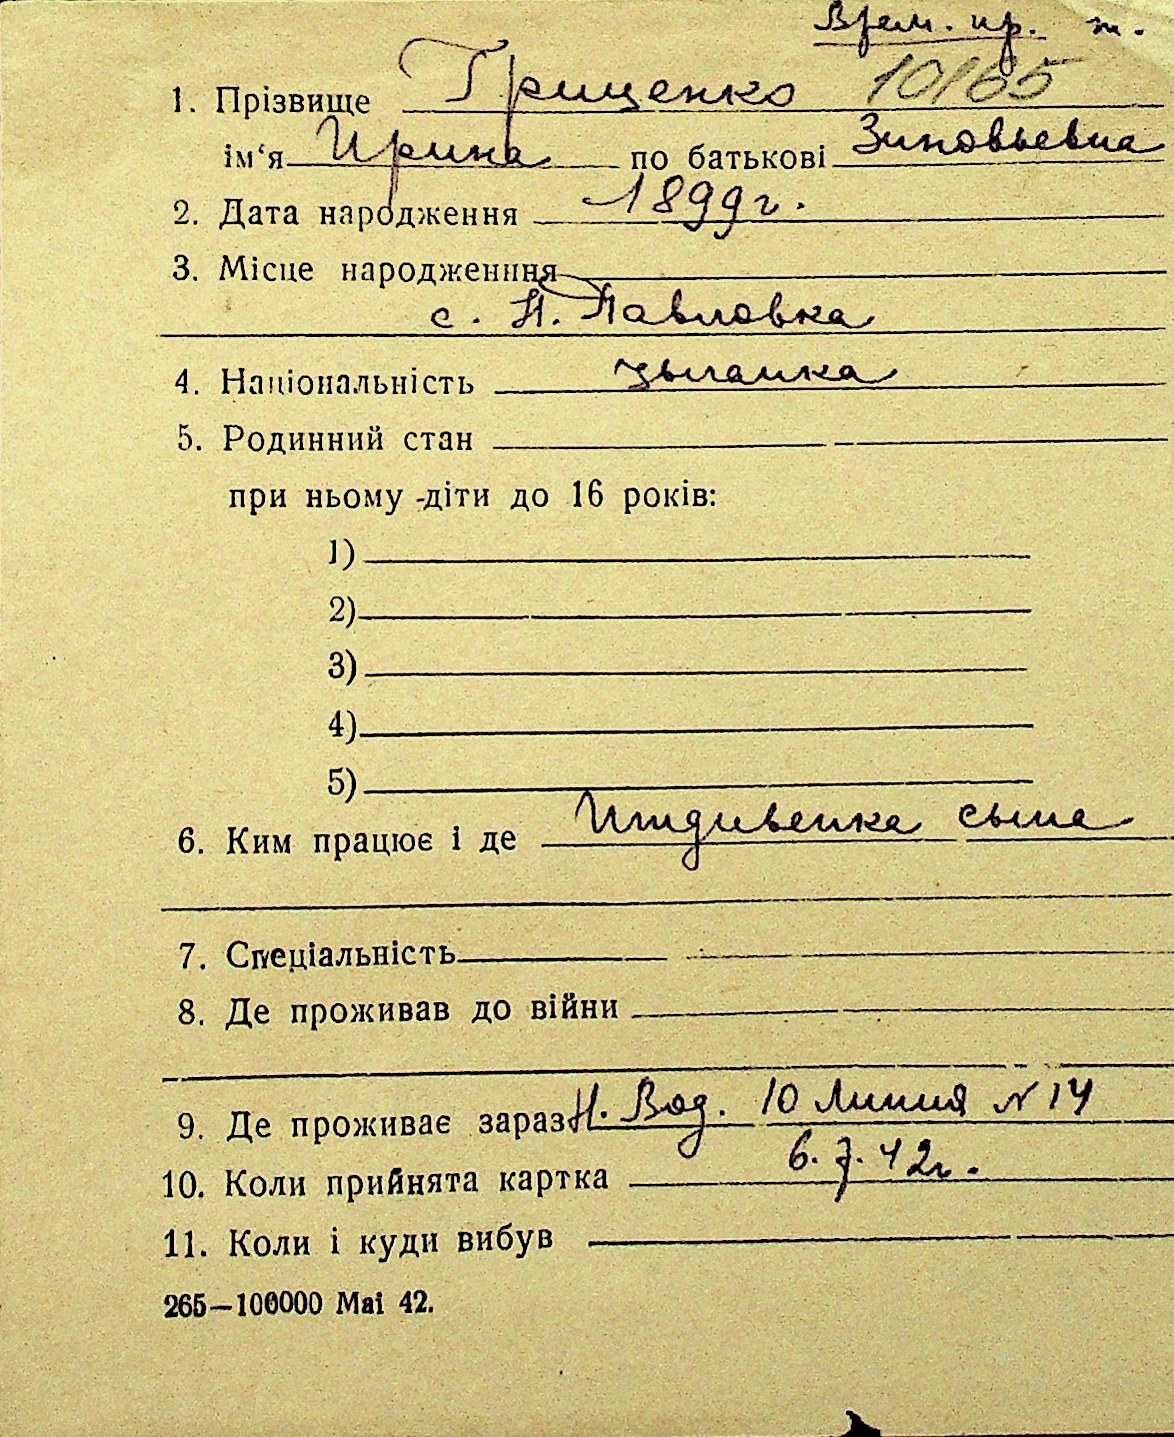 Врем. пр. т.
1. Прізвище Гриценко 10165
ім‘я Ирина по батькові Зиновьевна
2. Дата народження 1899г.
3. Місце народженння
с. Н. Павловка
4. Національність цыганка
5. Родинний стан
при ньому -діти до 16 років:
1)
2)
3)
4)
5)
6. Ким працює і де Иждивенка сына
7. Спеціальність
8. Де проживав до війни
9. Де проживає зараз Н. Вод. 10 Линия N 14
10. Коли прийнята картка 6.7.42г.
11. Коли і куди вибув
265—100000 Mai 42.